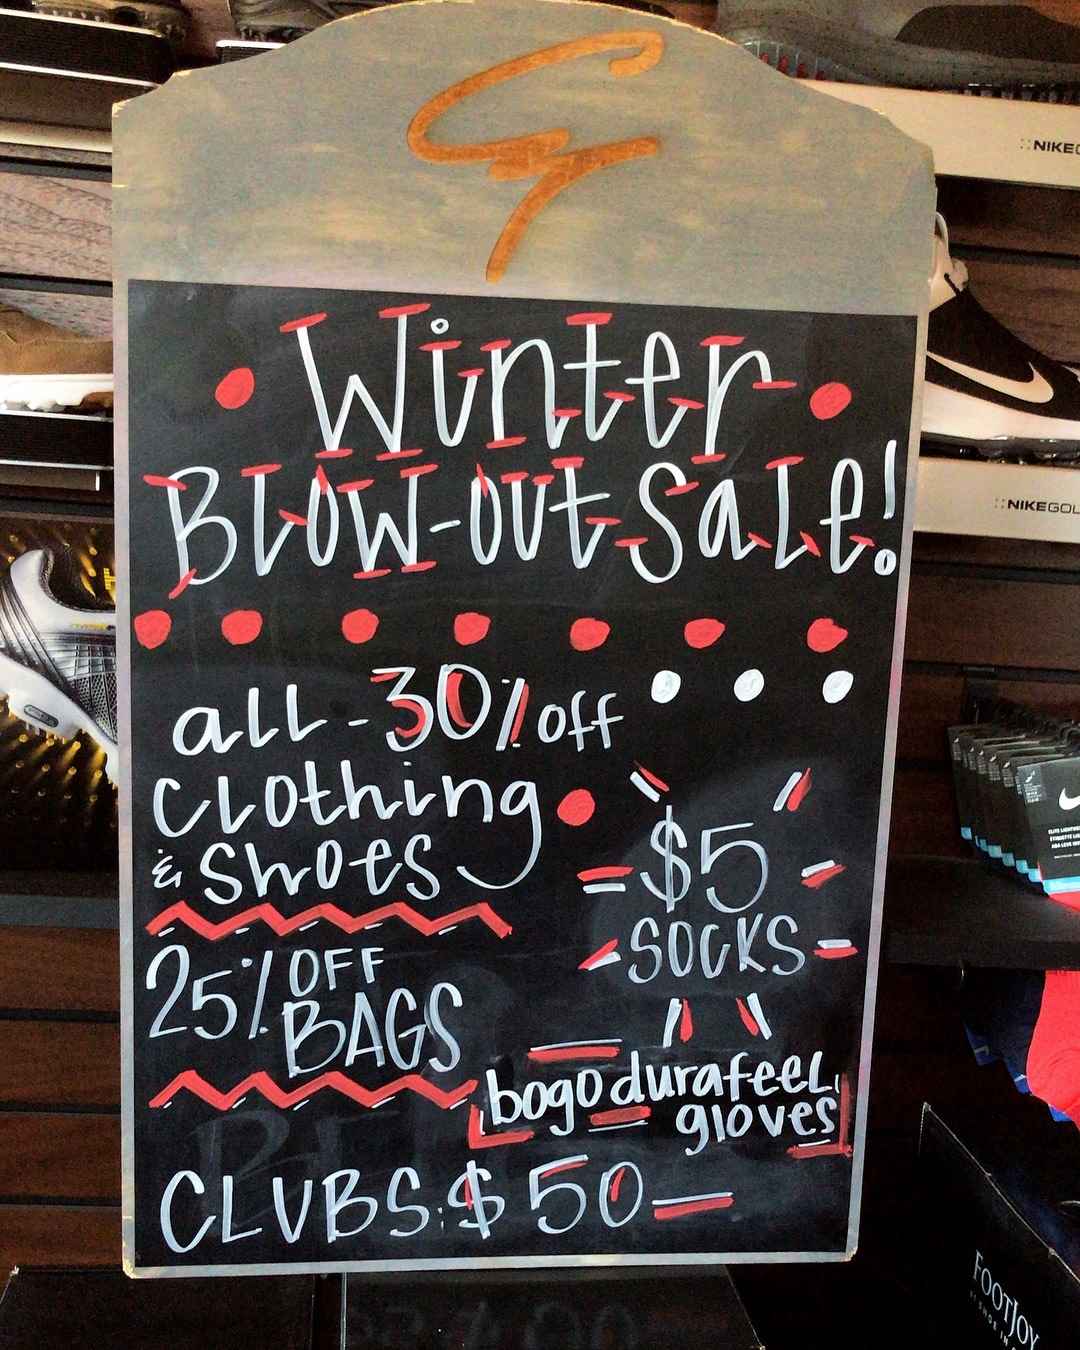 Winter
Blow-out Sale!
all - 30% off
clothing
& shoes
$5
SOCKS
25% OFF
BAGS
bogo durafeel
gloves
CLUBS: $50
NIKE
NIKEGOL
FOOTJOY